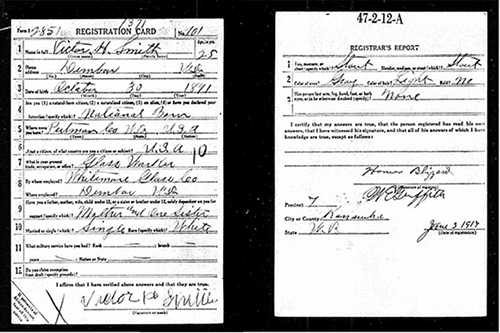 Form 1 2851 REGISTRATION CARD No. 101
1 Name in full Victor H. Smith Age, in yrs. 25
2 Home address Dunbar W.Va
3 Date of birth October 30 1891
4 Are you (1) a natural-born citizen, (2) a naturalized citizen, (3) an alien, (4) or have you declared your intention (specify which)? National Born
5 Where were you born? Putman Co W.Va U.S.A
6 If not a citizen, of what country are you a citizen or subject? U.S.A
7 What is your present trade, occupation, or office? Glass Worker 10
8 By whom employed? Glass Co
Where employed? Dunbar W.Va
9 Have you a father, mother, wife, child under 12, or a sister or brother under 12, solely dependent on you for support (specify which)? Mother and One Sister
10 Married or single (which)? Single Race (specify which)? White
11 What military service have you had? Rank branch
years Nation or State
12 Do you claim exemption from draft (specify grounds)?
I affirm that I have verified above answers and that they are true.
X Victor H Smith
(Signature or mark)
47-2-12-A
REGISTRAR'S REPORT
1 Tall, medium, or short (specify which)? Short Slender, medium, or stout (which)? Stout
2 Color of eyes? Gray Color of hair? Light Bald? No
3 Has person lost arm, leg, hand, foot, or both eyes, or is he otherwise disabled (specify)? None
I certify that my answers are true, that the person registered has read his own answers, that I have witnessed his signature, and that all of his answers of which I have knowledge are true, except as follows:
Precinct 7
City or County Kanawha
State W.Va
June 5 1917
(Date of registration)